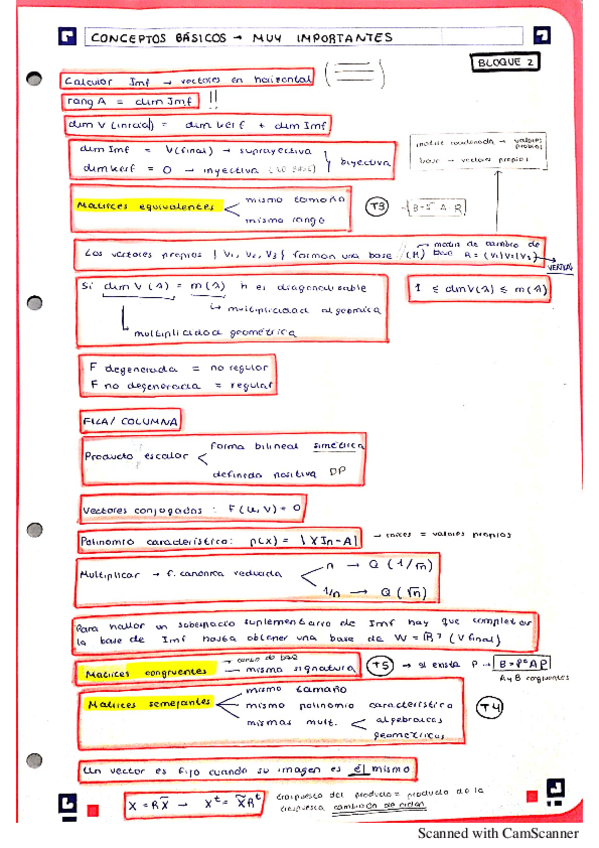 CONCEPTOS BÁSICOS → MUY IMPORTANTES
BLOQUE 2
Calcular Imf → vectores en horizontal
rang A = dim Imf !!
dim V (inicial) = dim kerf + dim Imf
dim Imf = V(final) → suprayectiva
dim kerf = 0 → inyectiva
biyectiva
→ valores propios
base → vectores propios
Matrices equivalentes
mismo tamaño
mismo rango
T3
Los vectores propios { V1, V2, V3 } forman una base (R)
→ matriz de cambio de base R = (V1|V2|V3)
Si dim V (λ) = m(λ) h es diagonalizable
→ multiplicidad algebraica
→ multiplicidad geométrica
1 ≤ dimV(λ) ≤ m(λ)
F degenerada = no regular
F no degenerada = regular
FILA/ COLUMNA
Producto escalar
forma bilineal simétrica
definida positiva DP
Vectores conjugados : F(u,v) = 0
Polinomio característico: p(X) = |XIn-A|
→ raíces = valores propios
Multiplicar → f. canónica reducida
n → Q (1/√n)
1/n → Q (√n)
Para hallar un subespacio suplementario de Imf hay que completar
la base de Imf hasta obtener una base de W = (V final)
Matrices congruentes
→ cambio de base
misma signatura
T5 → si exista P → B = PᵗAP
A y B congruentes
Matrices semejantes
mismo tamaño
mismo polinomio característico
mismas mult.
algebraicas
geométricas
T4
Un vector es fijo cuando su imagen es él mismo
X = RX̃ → Xᵗ = X̃Rᵗ
traspuesta del producto = producto de la
traspuesta, cambiando de orden
Scanned with CamScanner